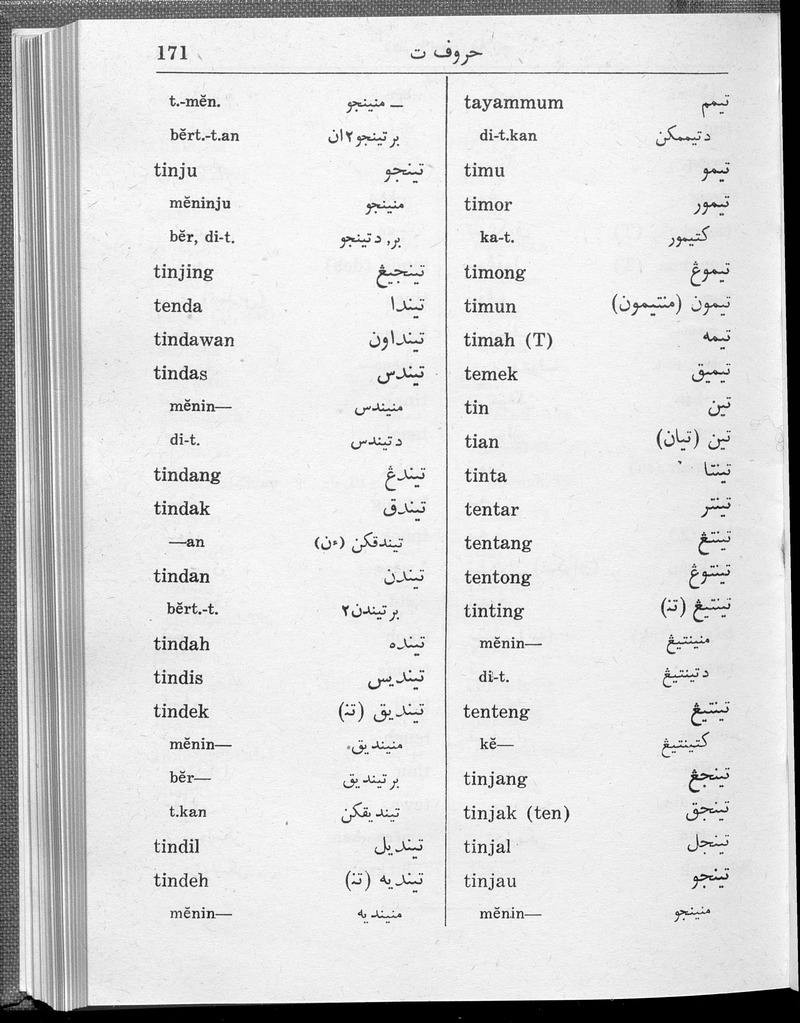 171 حروف ت
tayammum تيمم
di-t.kan دتيممكن
timu تيمو
timor تيمور
ka-t. كتيمور
timong تيموڠ
timun تيمون (منتيمون)
timah (T) تيمه
temek تيميق
tin تين
tian تين (تيان)
tinta تينتا
tentar تينتر
tentang تينتڠ
tentong تينتوڠ
tinting تينتيڠ (تن)
mĕnin— منينتيڠ
di-t. دتينتيڠ
tenteng تينتيڠ
kĕ— كتينتيڠ
tinjang تينجڠ
tinjak (ten) تينجق
tinjal تينجل
tinjau تينجو
mĕnin— منينجو
t.-mĕn. — منينجو
bĕrt.-t.an برتينجو٢ان
tinju تينجو
mĕninju منينجو
bĕr, di-t. بر, دتينجو
tinjing تينجيڠ
tenda تيندا
tindawan تينداون
tindas تيندس
mĕnin— منيندس
di-t. دتيندس
tindang تيندڠ
tindak تيندق
—an تيندقكن (ءن)
tindan تيندن
bĕrt.-t. برتيندن٢
tindah تينده
tindis تينديس
tindek تينديق (تن)
mĕnin— منينديق
bĕr— برتينديق
t.kan تينديقكن
tindil تينديل
tindeh تينديه (تن)
mĕnin— منينديه